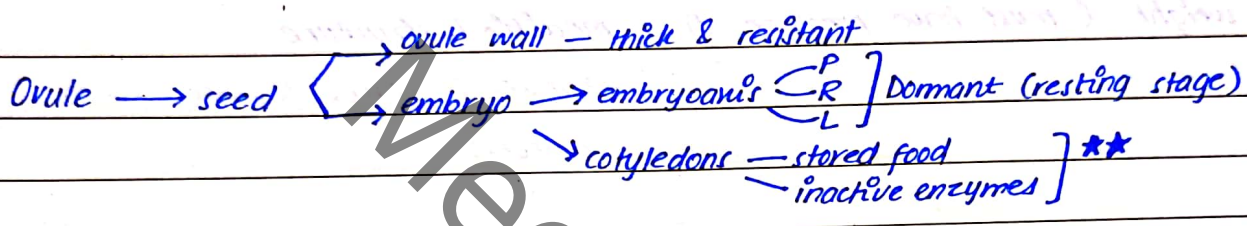 ovule wall — thick & resistant
Ovule → seed
embryo → embryoaxis P R L ] Dormant (resting stage)
cotyledons — stored food
— inactive enzymes ] ★★
Med